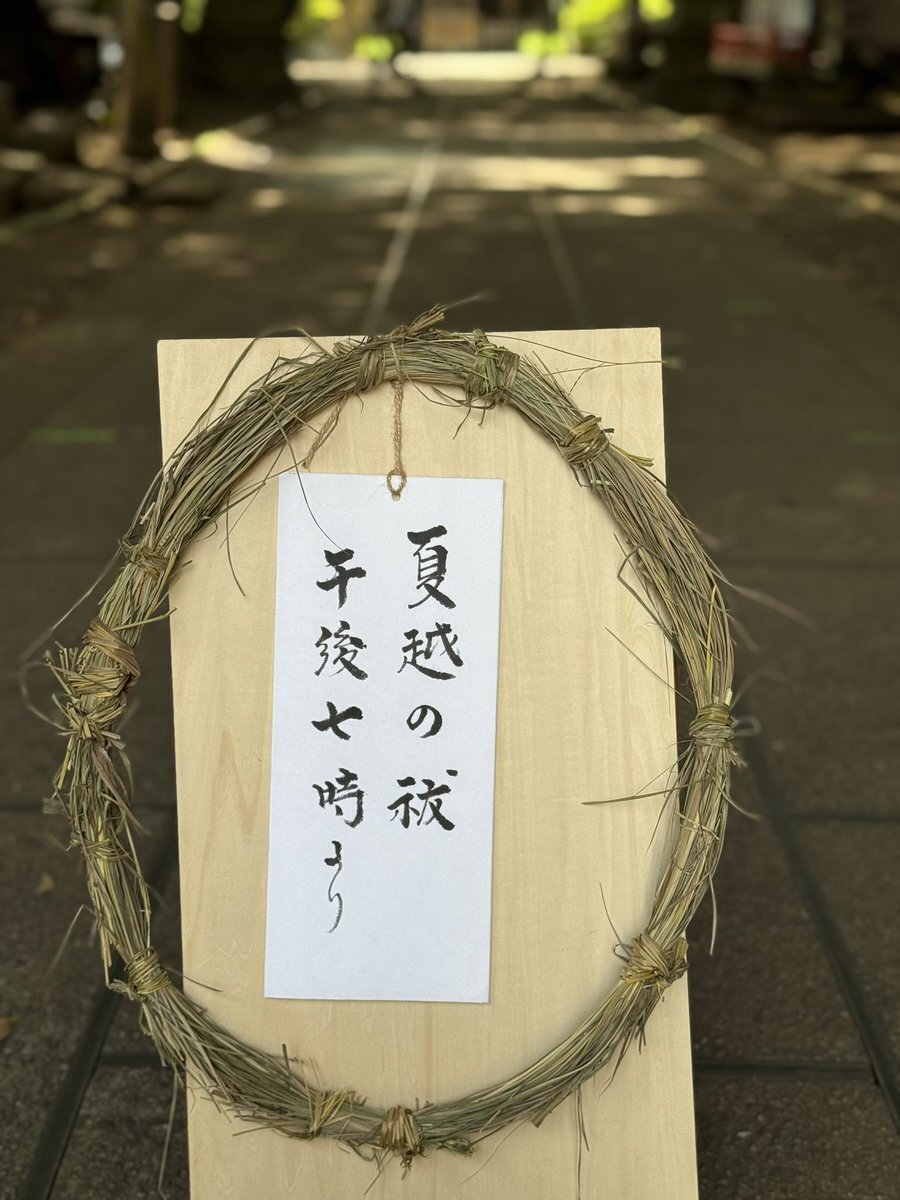 夏越の祓
午後七時より